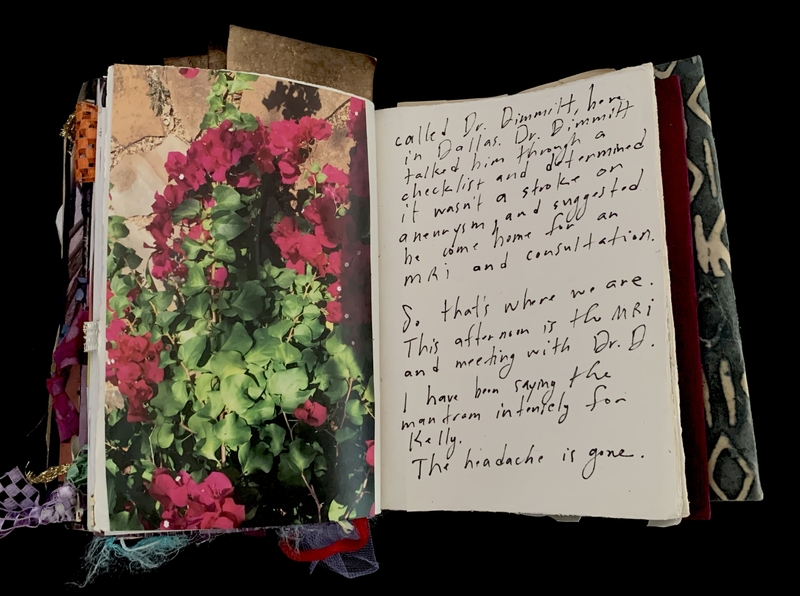 called Dr. Dimmitt, here
in Dallas. Dr. Dimmitt
talked him through a
checklist and determined
it wasn't a stroke or
aneurysm, and suggested
he come home for an
MRI and consultation.
So that's where we are.
This afternoon is the MRI
and meeting with Dr. D.
I have been saying the
mantram intensely for
Kelly.
The headache is gone.